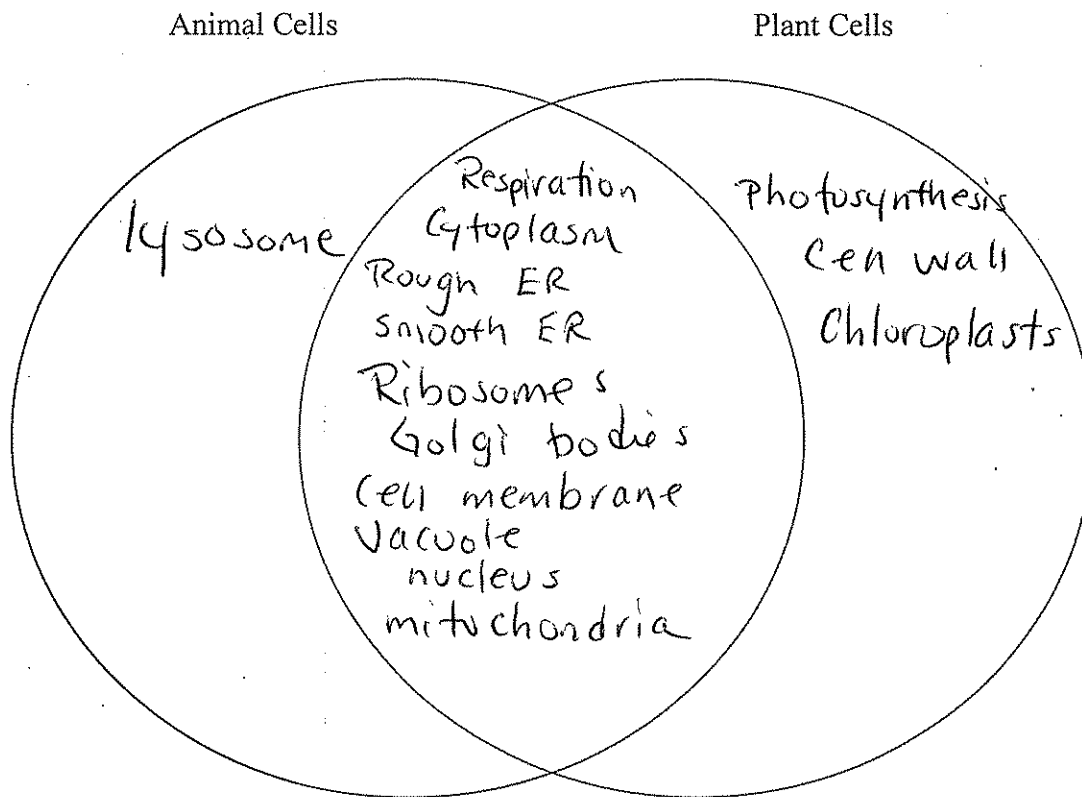 Animal Cells
Plant Cells
lysosome
Respiration
Cytoplasm
Rough ER
Smooth ER
Ribosomes
Golgi bodies
Cell membrane
Vacuole
nucleus
mitochondria
Photosynthesis
Cell wall
Chloroplasts